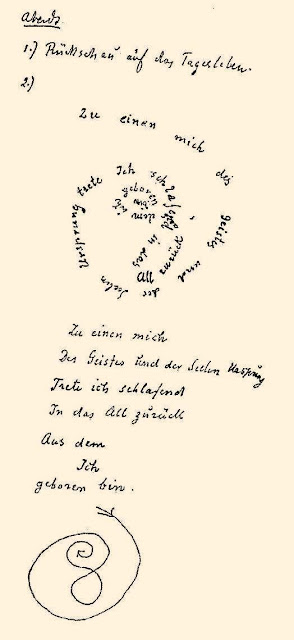 Abends
1.) Rückschau auf das Tagesleben.
2.)
Zu einen mich des geistes und der Seelen Ursprung trete Ich schlafend zurück in das All dem geboren
Zu einen mich
Des Geistes Und der Seelen Ursprung
Trete ich schlafend
In das All zurück
Aus dem
Ich
geboren bin.